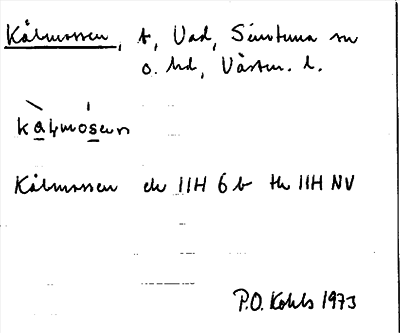 Kålmossen, t, Vad, Simtuna sn
o. hd, Västm. l.
kålmosen
Kålmossen ek 11H 6b tk 11H NV
P.O. Kohls 1973